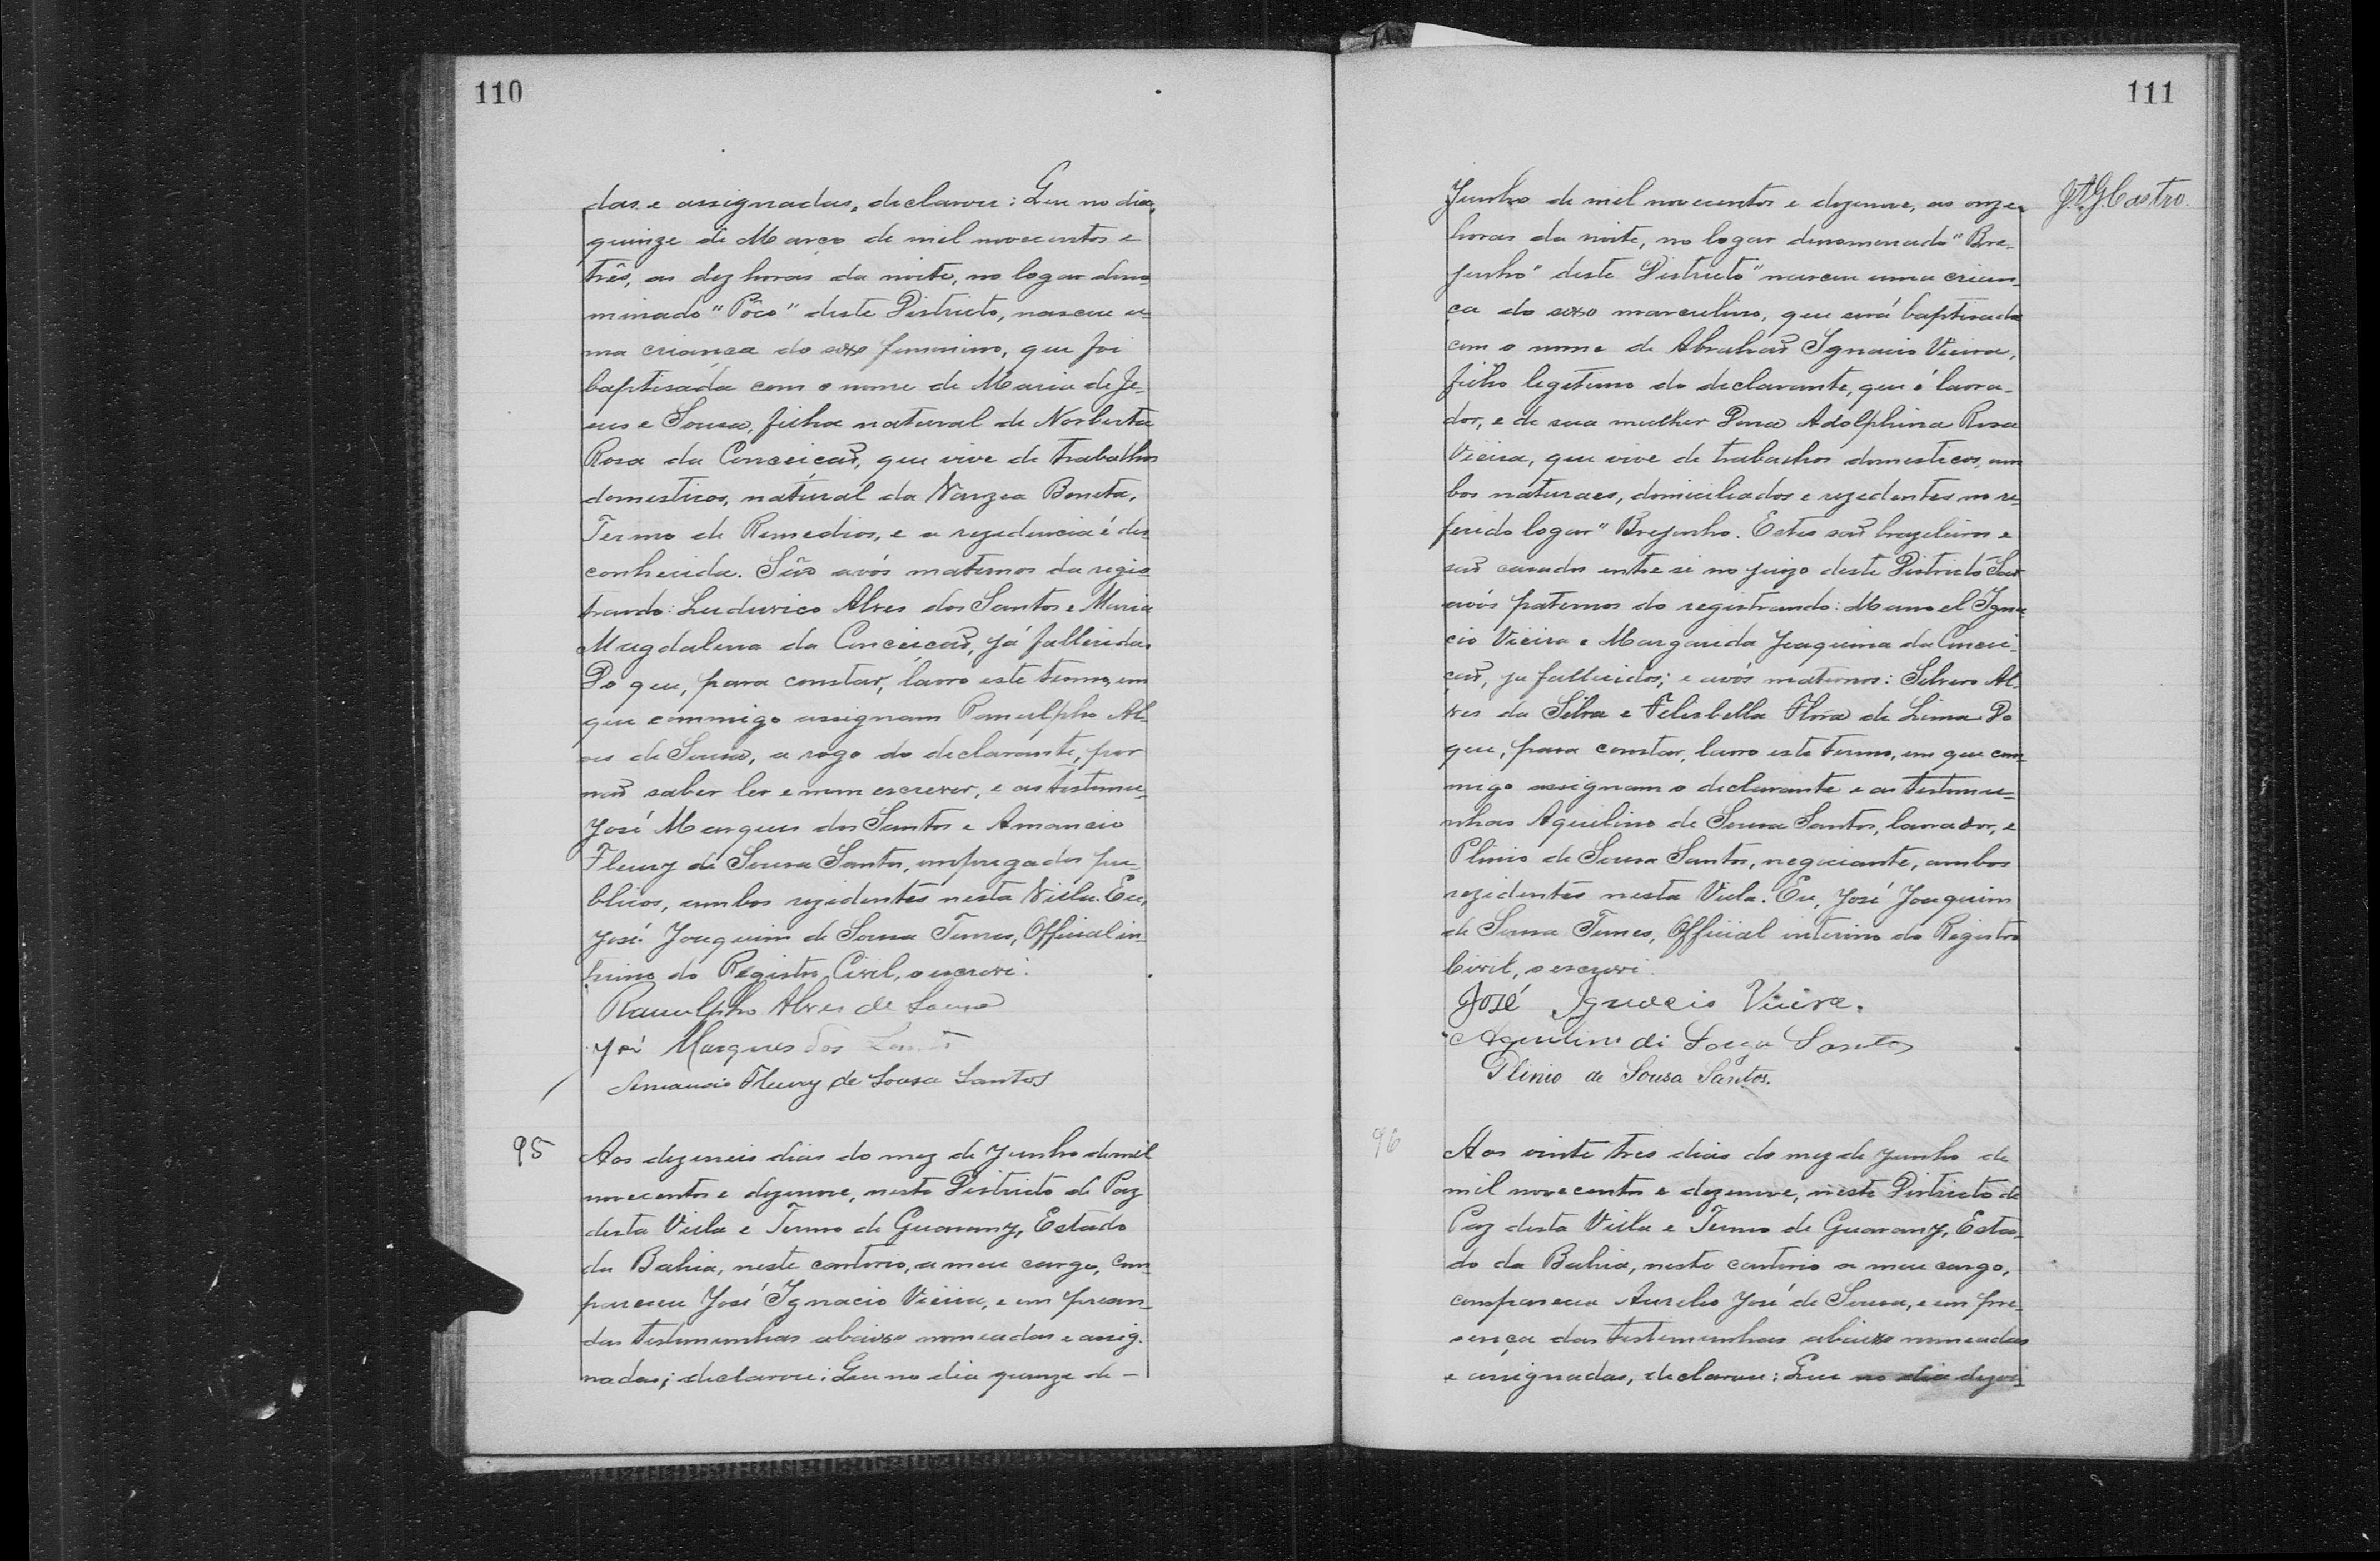 110
das e assignadas, declarou: Que no dia
quinze de Março de mil novecentos e
três, as dez horas da noite, no logar deno
minado "Pôço" deste Districto, nasceu u-
ma criança do sexo feminino, que foi
baptisada com o nome de Maria de Je-
sus e Sousa, filha natural de Norberta
Rosa da Conceição, que vive de trabalhos
domesticos, natural da Varzea Bonita,
Termo de Remedios, e a rezidencia é des
conhecida. São avós maternos da regis-
trando: Ludurico Alves dos Santos e Maria
Magdalena da Conceição, já fallecidos
Do que, para constar, lavro este termo, em
que commigo assignam Ranulpho Al-
ves de Sousa, a rogo do declarante, por
não saber ler e nem escrever, e as testemu-
José Marques dos Santos e Amancio
Fleury de Sousa Santos, empregados pu-
blicos, ambos rezidentes nesta Villa. Eu,
José Joaquim de Sousa Tunes, Official in-
terino do Registro Civil, o escrevi.
Ranulpho Alves de Sousa
José Marques dos Santos
Amancio Fleury de Sousa Santos
95
Aos dezeseis dias do mez de Junho de mil
novecentos e dezenove, neste Districto de Paz
desta Villa e Termo de Guarany, Estado
da Bahia, neste cartorio, a meu cargo, com
pareceu José Ignacio Vieira, e em presen-
das testemunhas abaixo nomeadas e assig-
nadas; declarou: Que no dia quinze de -
111
J. A. G. Castro.
Junho de mil novecentos e dezenove, as onze
horas da noite, no logar denominado "Bre-
jinho" deste Districto" nasceu uma crian-
ça do sexo masculino, que será baptisada
com o nome de Abrahaõ Ignacio Vieira,
filho legitimo do declarante, que é lavra-
dor, e de sua mulher Dona Adolphina Rosa
Vieira, que vive de trabachos domesticos, am
bos naturaes, domiciliados e rezedentes no re-
ferido logar "Brejinho. Estes saõ brazileiros e
saõ casados entre si no juizo deste Districto Saõ
avós paternos do registrando: Manoel Igna
cio Vieira e Margarida Joaquina da Concei-
çaõ, ja fallecidos; e avós maternos: Silverio Al-
ves da Silva e Felisbella Flora de Lima Do
que, para constar, lavro este termo, em que com
migo assignam o declarante e as testemu-
nhas Aquilino de Sousa Santos, lavrador, e
Plinio de Sousa Santos, negociante, ambos
rezidentes nesta Villa. Eu, José Joaquim
de Sousa Tunes, Official interino do Registro
Civil, o escrevi.
José Ignacio Vieira.
Aquilino di Souza Santos
Plinio de Sousa Santos.
96
Aos vinte tres dias do mez de Junho de
mil novecentos e dezenove, neste Districto de
Paz desta Villa e Termo de Guarany, Esta-
do da Bahia, neste cartorio a meu cargo,
compareceu Aurelio José de Sousa, e em pre-
sença das testemunhas abaixo nomeadas
e assignadas, declarou: Que no dia dezoi-